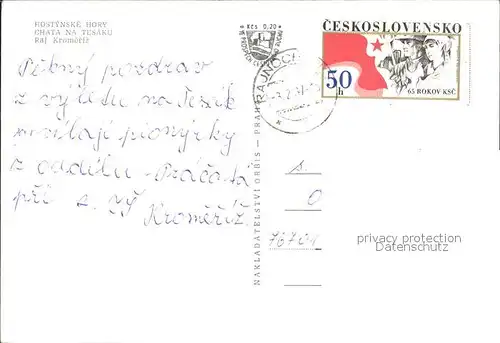 HOSTÝNSKÉ HORY
CHATA NA TESÁKU
Raj Kroměříž
Pěkný pozdrav
z výletu na Tesák
posílají pionýrky
z oddílu
při s. ZŠ
Kroměříž
Kčs 0,20
RAJNOCH
ČESKOSLOVENSKO
50 h
65 ROKOV KSČ
NAKLADATELSTVÍ ORBIS — PRAHA
s.
O
76701
privacy protection
Datenschutz